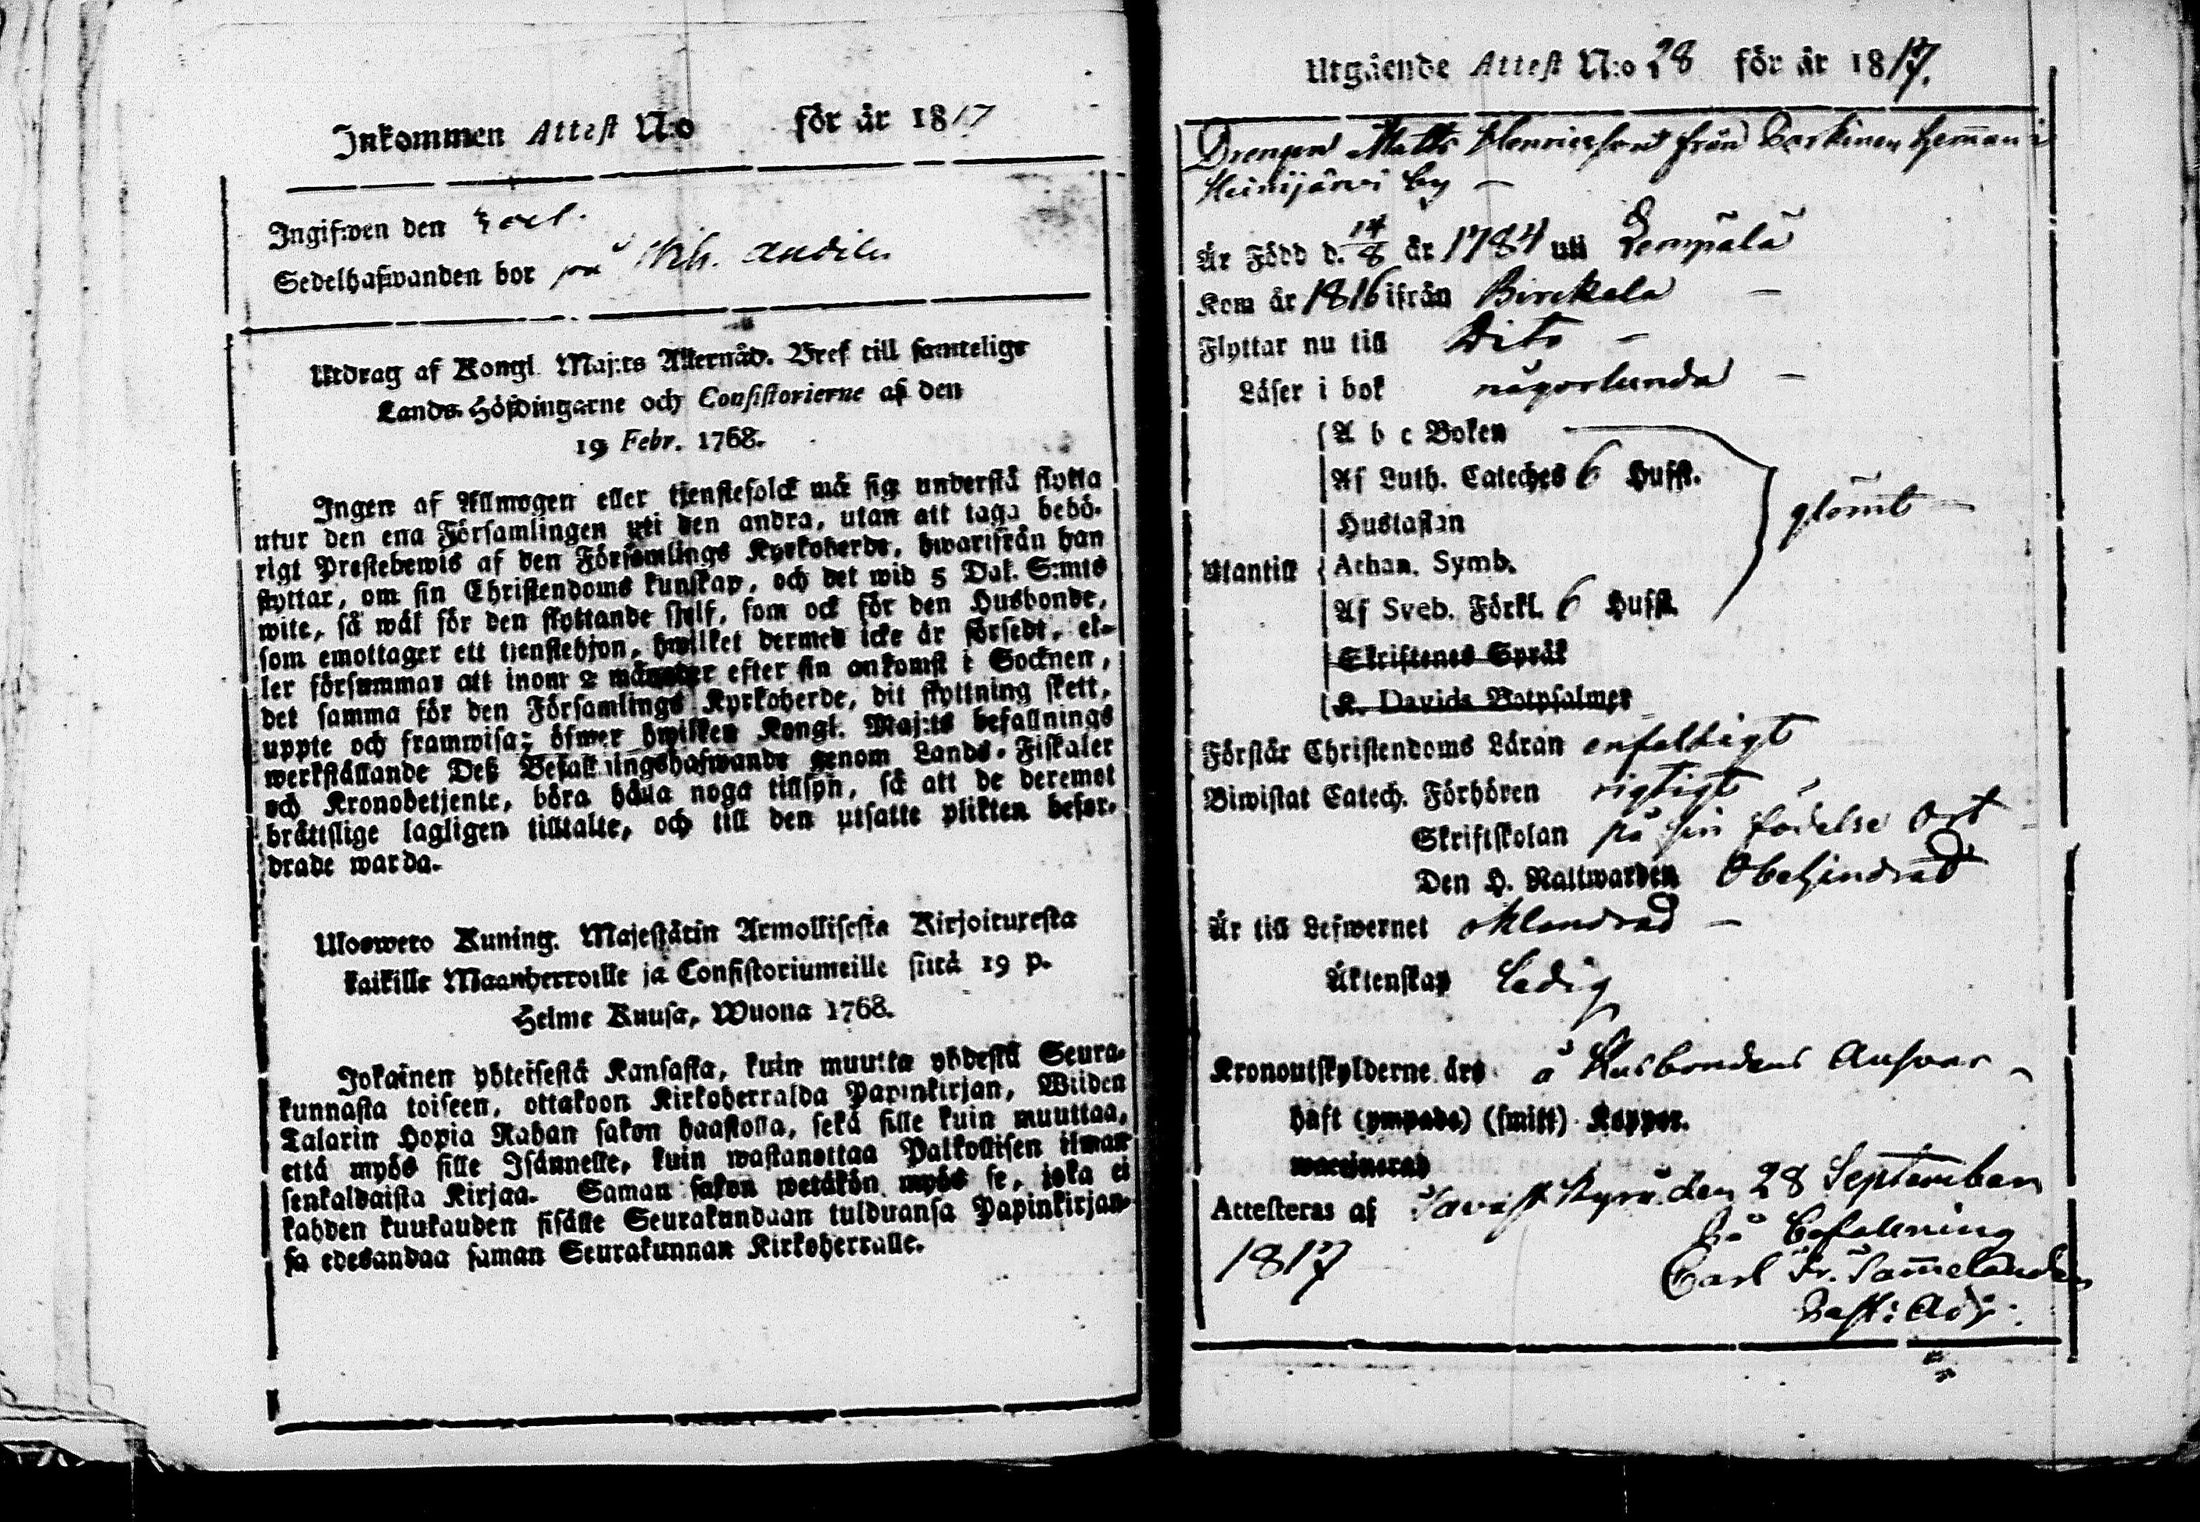 Inkommen Attest N:o för år 1817
Ingifwen den oct.
Sedelhafwanden bor på
Utdrag af Kongl. Maj:ts Allernåd. Bref till samtelige
Lands-Höfdingarne och Consistorierne af den
19 Febr. 1768.
Ingen af Allmogen eller tjenstefolck må sig understå flytta
utur den ena Församlingen uti den andra, utan att taga behö-
rigt Prestebewis af den Församlings Kyrkoherde, hwarifrån han
flyttar, om sin Christendoms kunskap, och det wid 5 Dal. S:mts
wite, så wäl för den flyttande sjelf, som ock för den Husbonde,
som emottager ett tjenstehjon, hwilket dermed icke är försedt, el-
ler försummar att inom 2 månader efter sin ankomst i Socknen,
det samma för den Församlings Kyrkoherde, dit flyttning skett,
uppte och framwisa; öfwer hwilken Kongl. Maj:ts befallnings
werkställande Deß Befallningshafwande genom Lands-Fiskaler
och Kronobetjente, böra hålla noga tillsyn, så att de deremot
bråttslige lagligen tilltalte, och till den utsatte plikten befor-
drade warda.
Uloswero Kuning. Majestätin Armollisesta Kirjoituresta
kaikille Maanherroille ja Consistoriumeille siitä 19 p.
Helme Kuusa, Wuona 1768.
Jokainen yhteisestä Kansasta, kuin muutta yhdestä Seura-
kunnasta toiseen, ottakoon Kirkoherralda Papinkirjan, Wiiden
Talarin Hopia Rahan sakon haastolla, sekä sille kuin muuttaa,
että myös sille Isännelle, kuin wastanottaa Palkollisen ilman
senkaldaista Kirjaa. Saman sakon wetäkön myös se, joka ei
kahden kuukauden sisälle Seurakundaan tulduansa Papinkirjan-
sa edesandaa saman Seurakunnan Kirkoherralle.
Utgående Attest N:o 28 för år 1817.
Drengen Matts Henricsson från Hemman i
Heinijärvi by –
Är Född d. 14/8 år 1784 uti Lempälä
Kom år 1816 ifrån Birckala –
Flyttar nu till Dito –
Läser i bok någorlunda –
A b c Boken
Af Luth. Cateches 6 Hufst.
Hustaflan
glömt –
Utantill Athan. Symb.
Af Sveb. Förkl. 6 Hufst.
Skriftenes Språk
K. Davids Botpsalmer
Förstår Christendoms Läran enfaldigt
Biwistat Catech. Förhören rigtigt
Skriftskolan på sin födelse Ort –
Den H. Nattwarden Obehindrad
Är till Lefwernet oklandrad –
Äktenskap Ledig
Kronoutskylderne äro å Husbondens Answar –
Haft (ympade) (smitt) Koppor.
waccinerad
Attesteras af Tavast Kyro den 28 September
1817 På befallning
Carl Fr.
Past: Adj: